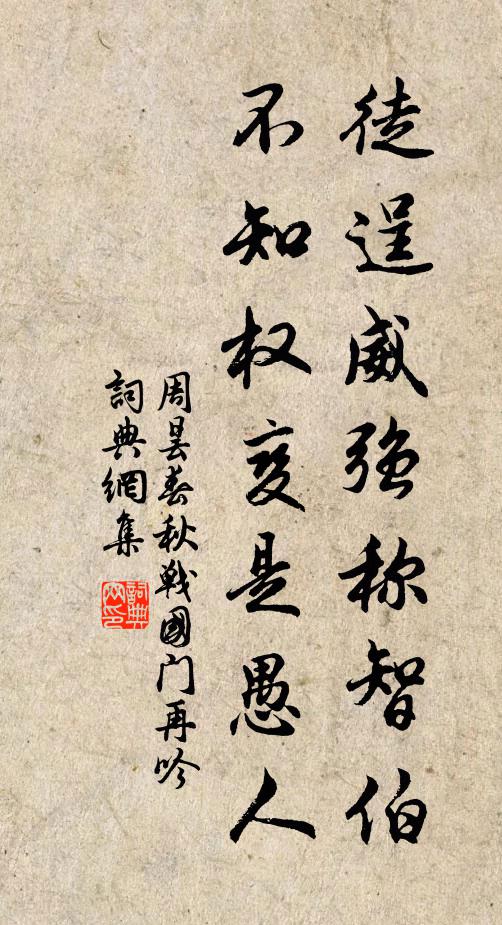 徒逞威强称智伯
不知权变是愚人
周昙春秋戦國门再吟
詞典網集
詞典
网印